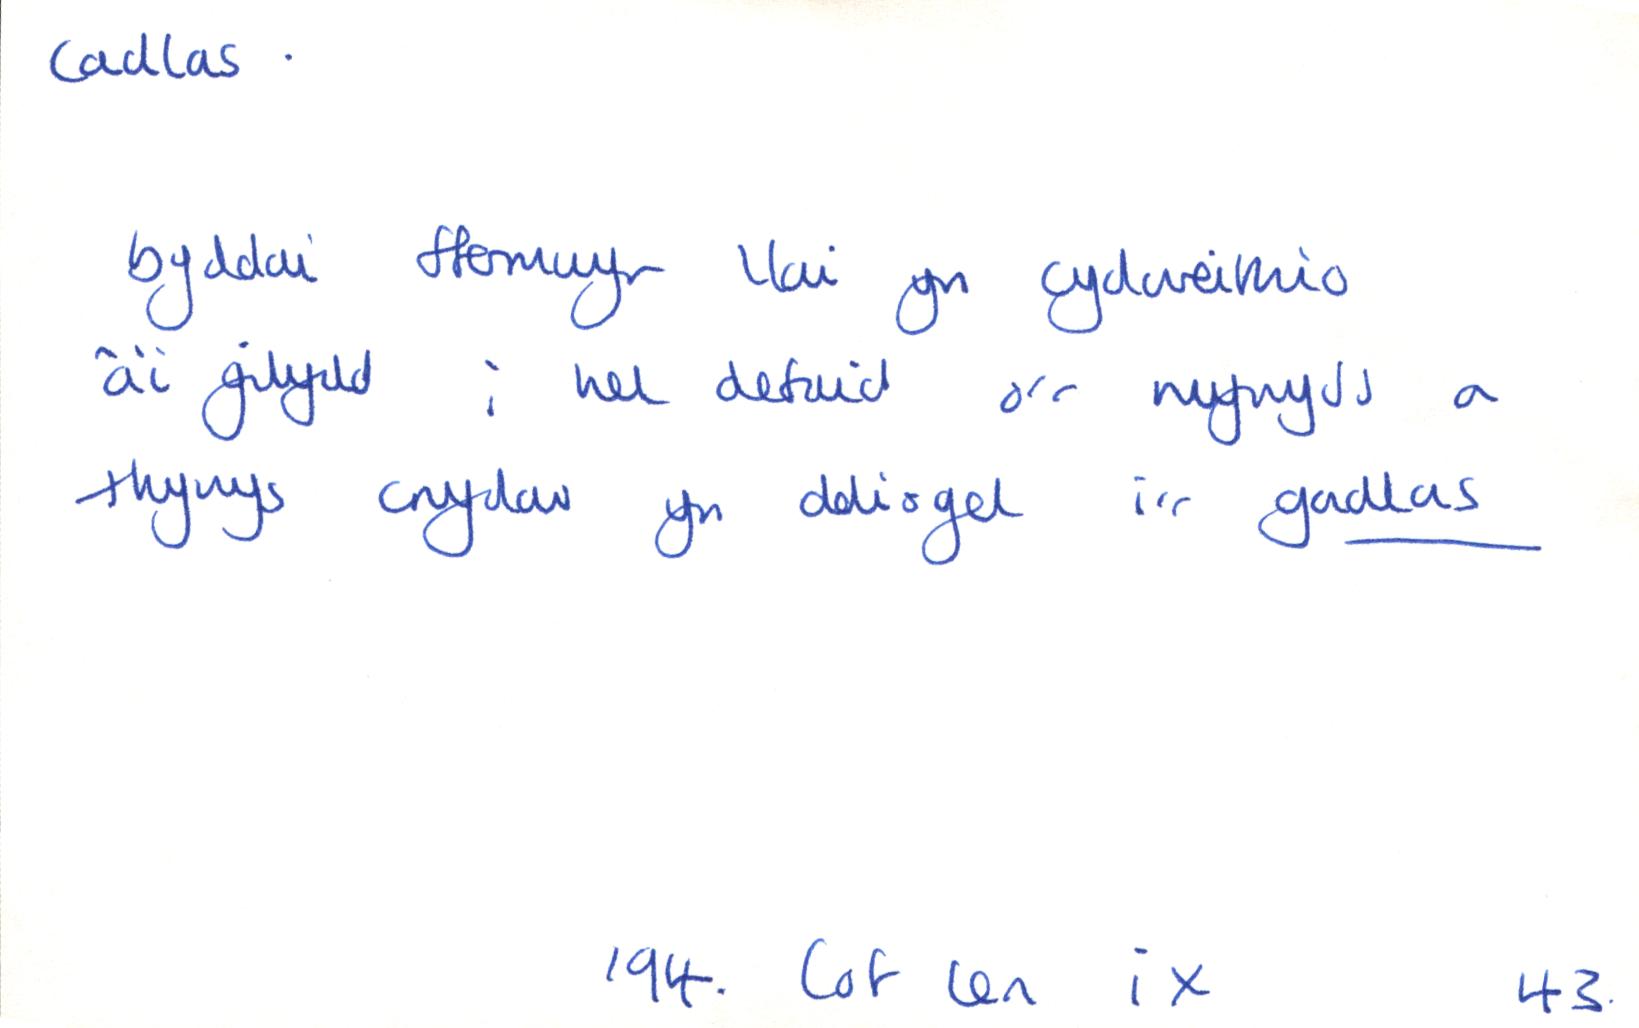 Cadlas .
byddai ffermwyr llai yn cydweithio
â'i gilydd i hel defaid o'r mynydd a
thywys cnydau yn ddiogel i'r gadlas
194. Cof Cen ix 43.